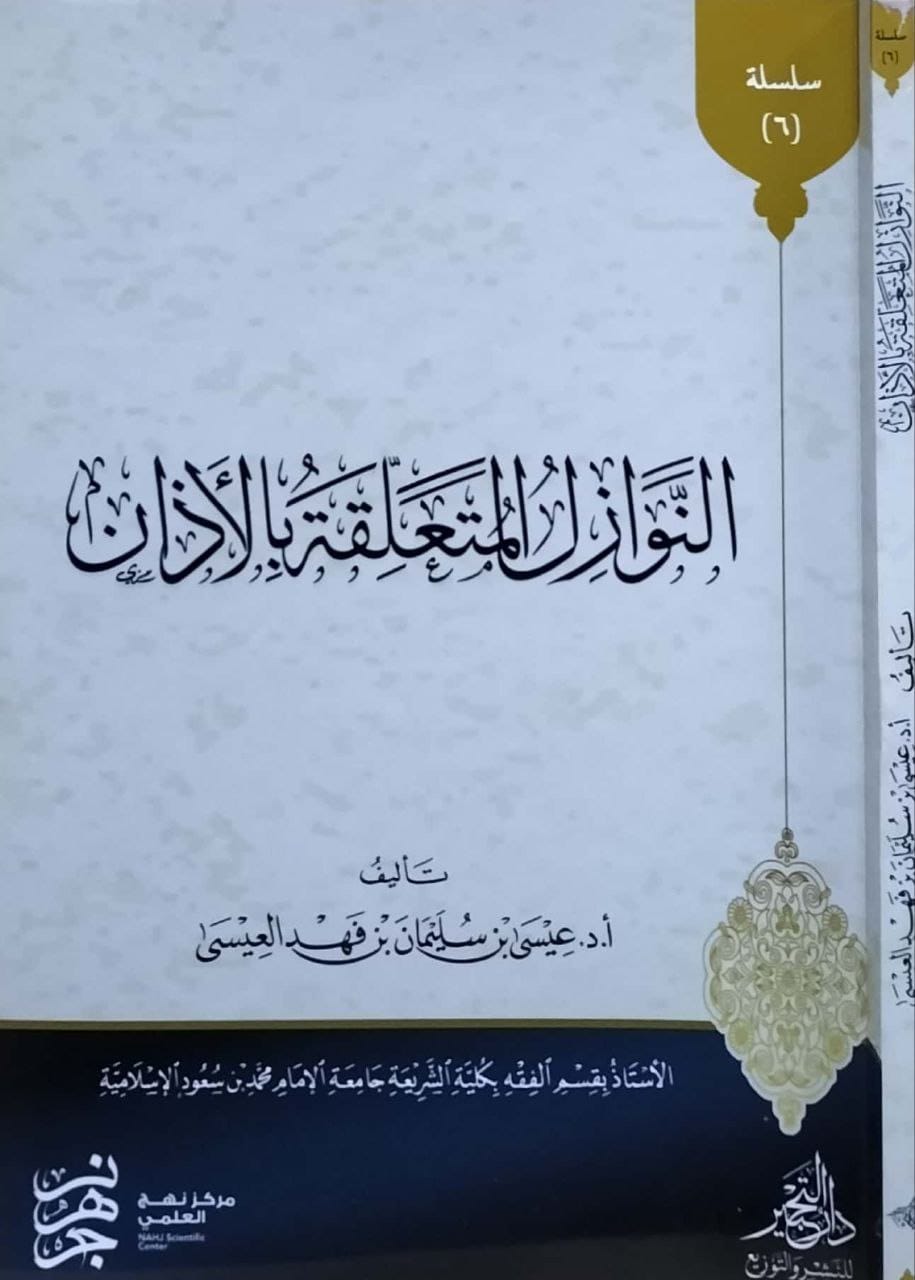 سلسلة
(٦)
النَّوَازِلُ المُتَعَلِّقَةُ بِالأَذَانِ
تَأليفُ
أ.د. عِيْسَى بْن سُلَيْمَانَ بْن فَهَد العِيْسَى
الأُسْتَاذُ بِقِسْمِ الفِقْهِ بِكُلِّيَّةِ الشَّرِيعَةِ جَامِعَةِ الإِمَامِ مُحَمَّد بْن سُعُود الإِسْلَامِيَّةِ
مركز نهج
العلمي
NAHJ Scientific
Center
نهج
دار التحبير
للنشر والتوزيع
سلسلة
(٦)
النَّوَازِلُ المُتَعَلِّقَةُ بِالأَذَانِ
تَأليفُ
أ.د. عِيْسَى بْن سُلَيْمَانَ بْن فَهَد العِيْسَى